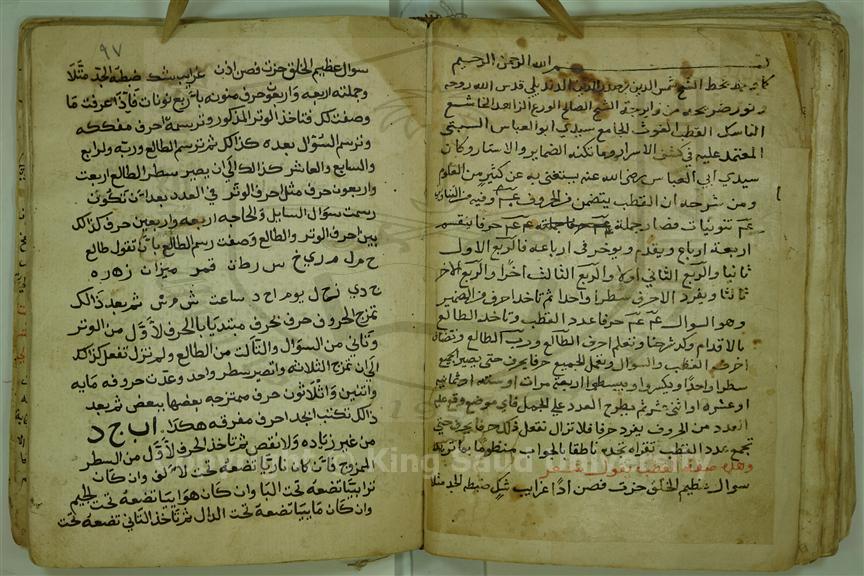 بسم الله الرحمن الرحيم
بخط الشيخ شمس الدين قدس الله روحه
ونور ضريحه الشيخ الصالح الورع الزاهد الخاشع
الناسك القطب الغوث الجامع سيدي ابو العباس السبتي
المعتمد عليه في كشف الاسرار وما تكنه الضماير والاستار وكان
سيدي أبي العباس رضي الله عنه يستغنى به عن كثير من العلوم
ومن شرحه ان القطب يتضمن من الحروف وفيه من
تنوينات فصار جملة حرفا ينقسم
اربعة ارباع ويقدم ويوخر في ارباعه فالربع الاول
ثانيا والربع الثاني اولا والربع الثالث اخرا والربع الاخر
ثالثا ويفرد الاحرف سطرا واحدا ثم تاخذ احرف الضمير
وهو السوال حرفا عدد القطب وتاخذ الطالع
بالاقدام وتعلم احرف الطالع ورب الطالع
احرف القطب والسوال وتعمل الجميع حرفا بحرف حتى يصير الجميع
سطرا واحدا اربعة مرات او ستة
او عشره او اثنى عشر ثم مطروح العدد على الجمل فاي موضع وقع عليه
العدد من الحروف يفرد حرفا فلا تزال تفعل ذلك حرفا بحرف حتى
تجمع عدد القطب تقراه تجده ناطقا بالجواب منظوما
وهذه صفة القطب تقول شعر
سوال عظيم الخلق حزت فصن اذا غرايب شك ضبطه الجد مثلا
٩٧
سوال عظيم الخلق حزت فصن اذن غرايب شك ضبطه الجد مثلا
وجملته اربعه واربعون حرف منونه باربع نونات فاذا عرفت ما
وصفت لك فتاخذ الوتر المذكور وترسمه احرف مفككه
وترسم السوال بعده كذالك ثم ترسم الطالع وربه والرابع
والسابع والعاشر كذالك الى ان يصير سطر الطالع اربعت
واربعون حرف مثل احرف الوتر في العدد بعد ان تكون
رسمت سوال السايل والحاجه اربعه واربعين حرف كذالك
بين احرف الوتر والطالع وصفت رسم الطالع بان تقول طالع
ح م ل م ري خ س رطان قمر ميزان زهره
ج دي زحل يوم ا ح د ساعت ش م س ثم بعد ذالك
تمزج الحروف حرف بحرف مبتديا بالحرف الاول من الوتر
وثاني من السوال والثالث من الطالع ولم تزل تفعل كذالك
الى ان تمزج الثلاثه وتصير سطر واحد وعدت حروفه مايه
واثنين واثلاثون حرف ممتزجه بعضها ببعض ثم بعد
ذالك تكتب ابجد احرف مفرقه هكذا ا ب ج د
من غير زياده ولا نقص ثم تاخذ الحرف الاول من السطر
الممزوج فان كان ناريا تضعه تحت الالف وان كان
ترابيا تضعه تحت البا وان كان هوايا تضعه تحت الجيم
وان كان ماييا تضعه تحت الدال ثم تاخذ الثاني تضعه تحت
King Saud